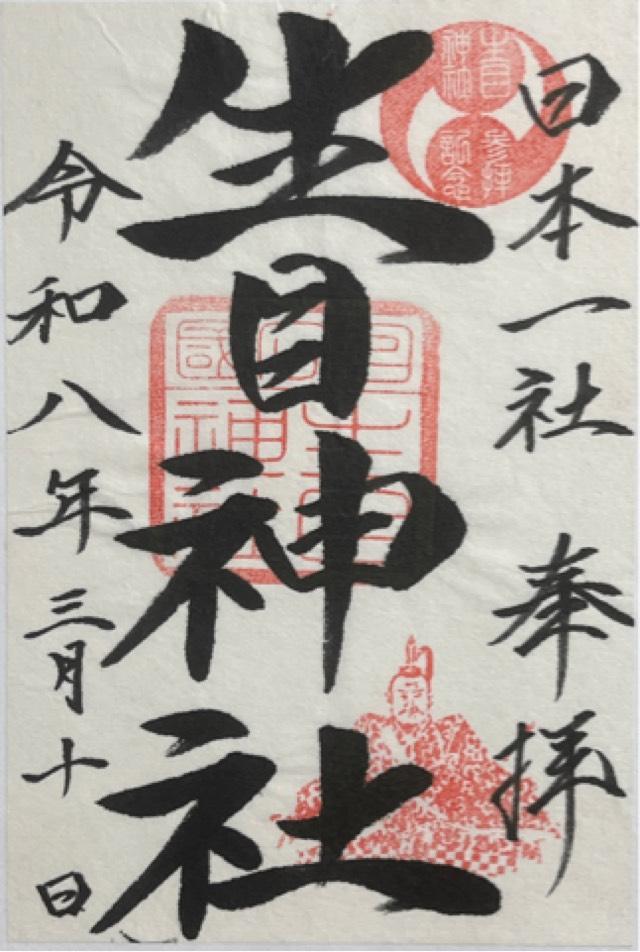 日本一社 奉拝
生目神社
令和八年三月十日
生目
神社
参拝
記念